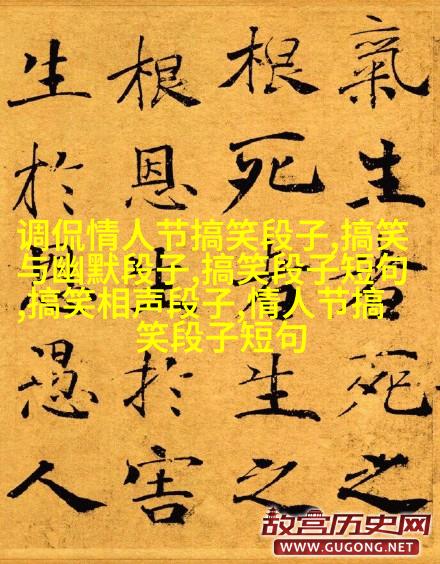 氣生死之
根死者生之
根恩於害
生於愚人
调侃情人节搞笑段子,搞笑
与幽默段子,搞笑段子短句
,搞笑相声段子,情人节搞
笑段子短句
故宫历史网
WWW.GUGONG.NET